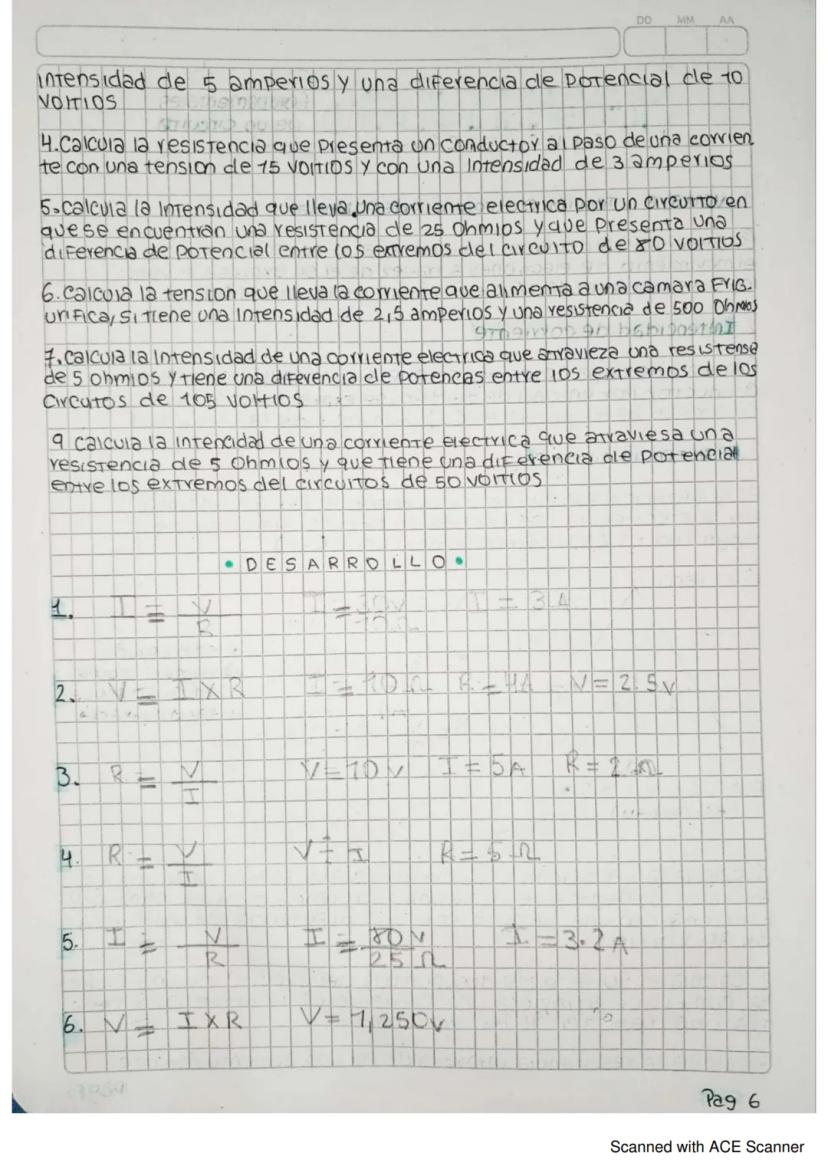 DD MM AA
intensidad de 5 amperios y una diferencia de potencial de 10
voltios
4. Calcula la resistencia que presenta un conductor al paso de una corrien
te con una tension de 15 voltios y con una intensidad de 3 amperios
5. Calcula la intensidad que lleva una corriente electrica por un circuito en
que se encuentran una resistencia de 25 ohmios y que presenta una
diferencia de potencial entre los extremos del circuito de 80 voltios
6. Calcula la tension que lleva la corriente que alimenta a una camara frig.
urifica, si tiene una intensidad de 2,5 amperios y una resistencia de 500 ohmios
7. Calcula la intensidad de una corriente electrica que atravieza una resistense
de 5 ohmios y tiene una diferencia de potencas entre los extremos de los
circutos de 105 voltios
9 calcula la intencidad de una corriente electrica que atraviesa una
resistencia de 5 ohmios y que tiene una diferencia de potencial
entre los extremos del circuitos de 50 voltios
• DESARROLLO •
1. I = V/R I = I = 3A
2. V = I X R I = 10 Ω R = 4A V = 2.5v
3. R = V/I V = 10v I = 5A R = 2 Ω
4. R = V/I V ÷ I R = 5 Ω
5. I = V/R I = 80v/25 Ω I = 3.2A
6. V = I X R V = 1,250v
Pag 6
Scanned with ACE Scanner